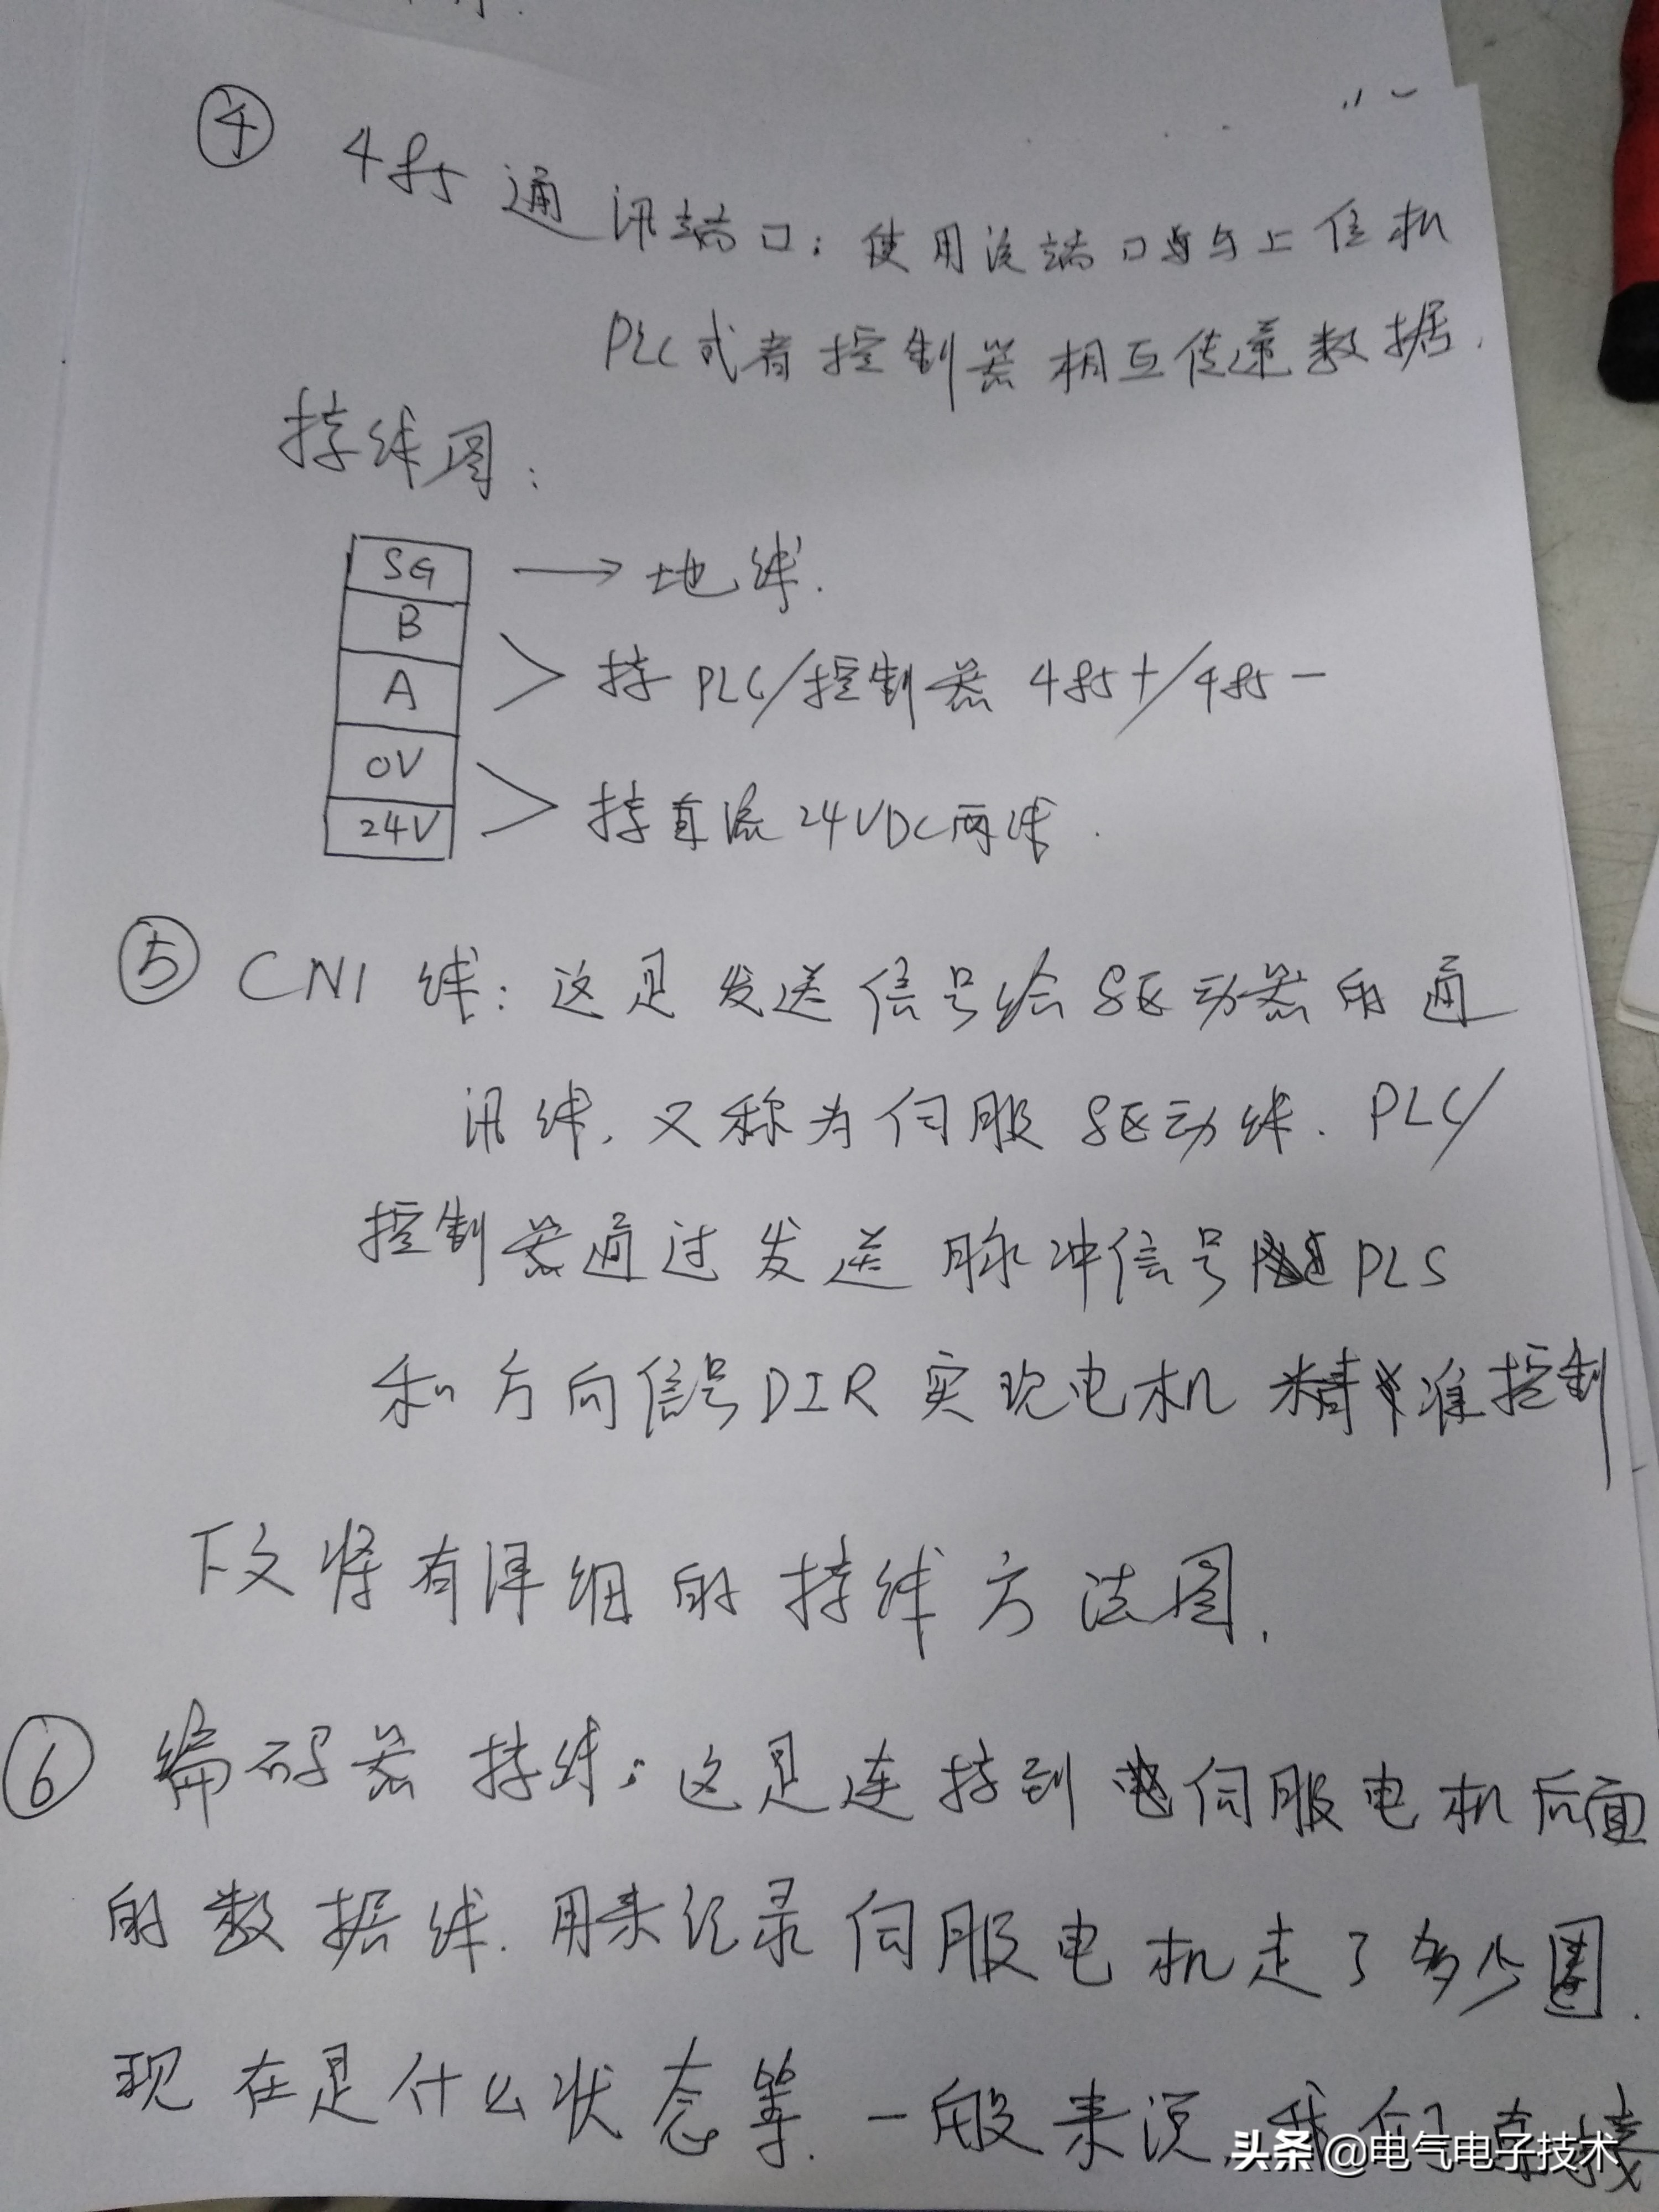 ④ 485通讯端口：使用该端口与上位机
PLC或者控制器相互传递数据.
接线图：
SG → 地线.
B
A
接PLC/控制器 485+/485-
0V
24V
接直流24VDC两线.
⑤ CN1 线：这是发送信号给驱动器的通
讯线，又称为伺服驱动线. PLC/
控制器通过发送脉冲信号PLS
和方向信号DIR实现电机精准控制
下文将有详细的接线方法图.
⑥ 编码器接线：这是连接到伺服电机后面
的数据线.用来记录伺服电机走了多少圈.
现在是什么状态等.一般来说,我们直接
头条@电气电子技术